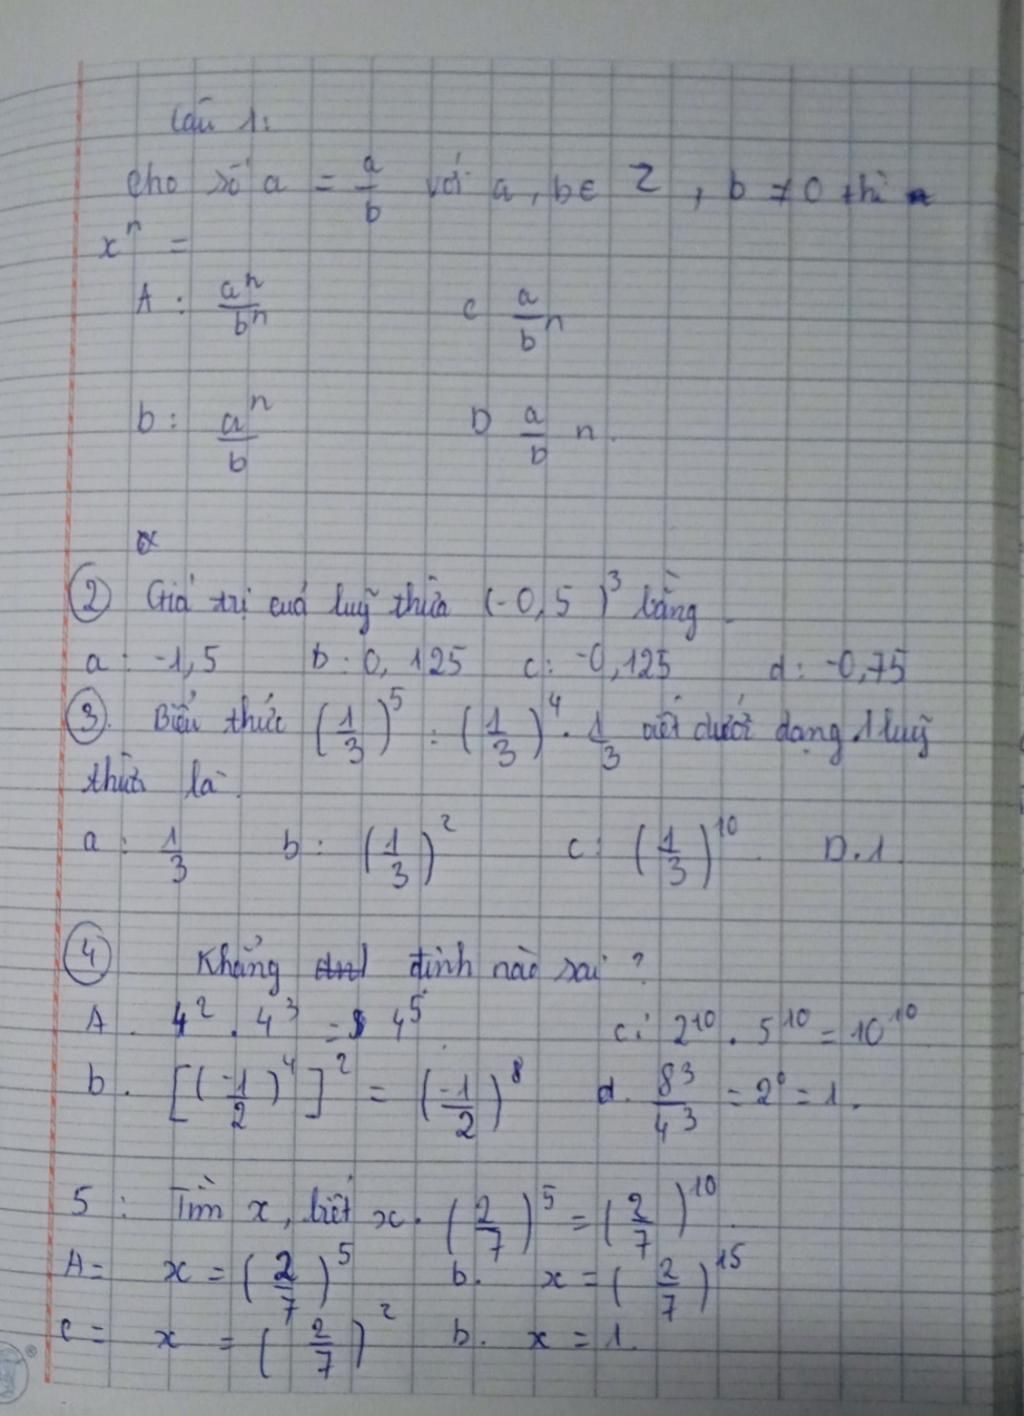 Câu 1:
Cho số a = a/b với a, b ∈ Z, b ≠ 0 thì
xⁿ =
A: aⁿ/bⁿ C a/bⁿ
b: aⁿ/b D a/b n.
② Giá trị của luỹ thừa (-0,5)³ bằng
a: -1,5 b: 0,125 c: -0,125 d: -0,75
③. Biểu thức (1/3)⁵ : (1/3)⁴ . 1/3 viết dưới dạng 1 luỹ
thừa là.
a: 1/3 b: (1/3)² c: (1/3)¹⁰. D. 1
④ Khẳng định nào sai?
A. 4² . 4³ = 4⁵ c: 2¹⁰ . 5¹⁰ = 10¹⁰
b. [(-1/2)⁴]² = (-1/2)⁸ d. 8³/4³ = 2⁰ = 1.
5: Tìm x, biết x. (2/7)⁵ = (2/7)¹⁰.
A= x = (2/7)⁵ b. x = (2/7)¹⁵
c= x = (2/7)² b. x = 1.